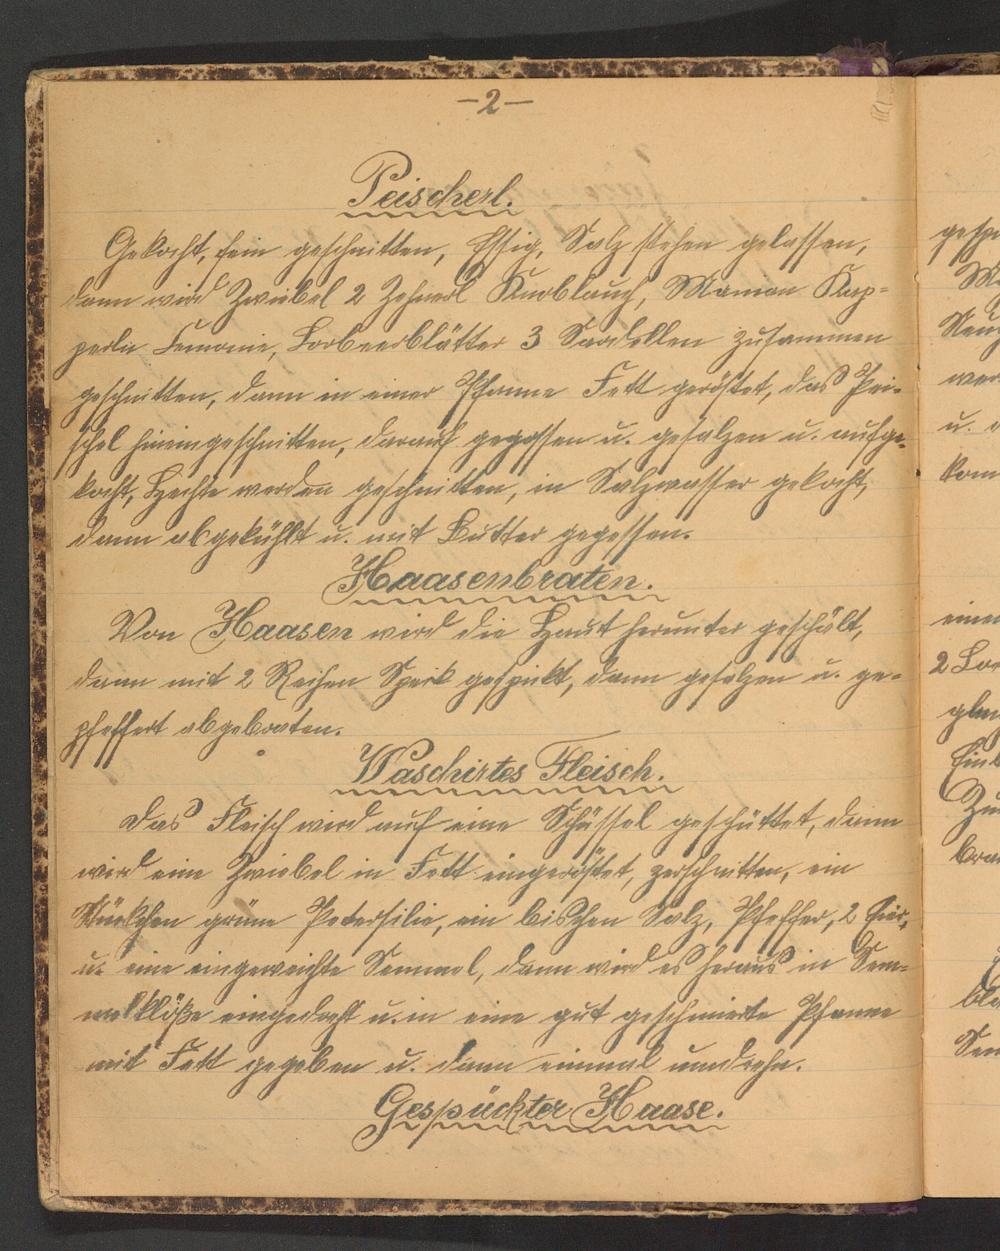 -2-
Peischerl.
Gekocht, fein geschnitten, Essig, Salz stehen gelassen,
dann wird Zwiebel 2 Zehnerl Knoblauch, Kap-
perln Lemonie, Lorbeerblätter 3 Sardellen zusammen
geschnitten, dann in einer Pfanne Fett geröstet, das Pei-
schel hineingeschnitten, darauf gegossen u. gesalzen u. aufge-
kocht, Hechte werden geschnitten, in Salzwasser gekocht,
dann abgekühlt u. mit Butter gegessen.
Haasenbraten.
Von Haasen wird die Haut herunter geschält,
dann mit 2 Reihen Speck gespickt, dann gesalzen u. ge-
pfeffert abgebraten.
Waschirtes Fleisch.
Das Fleisch wird auf eine Schüssel geschüttet, dann
wird eine Zwiebel in Fett eingeröstet, zerschnitten, ein
Stückchen grüne Petersilie, ein bischen Salz, Pfeffer, 2 Eier,
u. eine eingeweichte Semmel, dann wird es heraus in Sem-
melklöße eingedreht u. in eine gut geschmierte Pfanne
mit Fett gegeben u. dann einmal umdrehn.
Gespückter Haase.